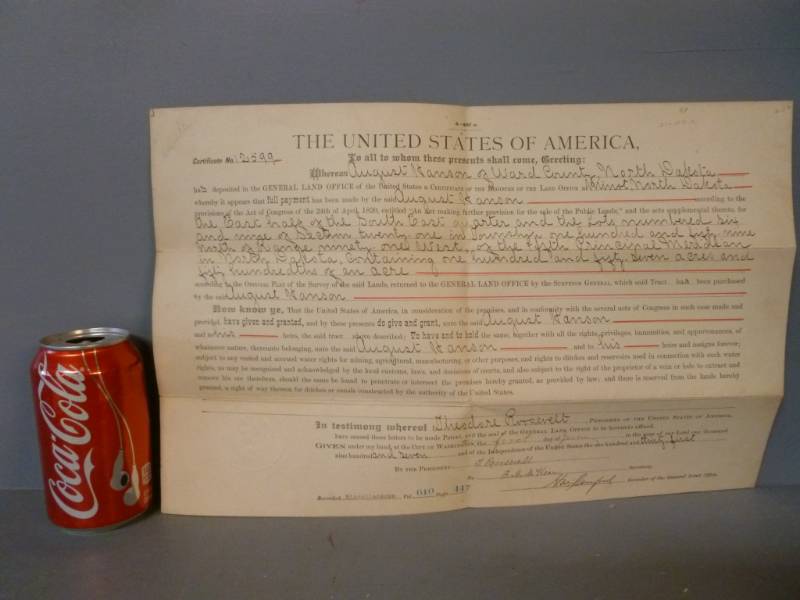 THE UNITED STATES OF AMERICA,
Certificate No. 12599 To all to whom these presents shall come, Greeting:
Whereas August Hanson of Ward County, North Dakota
has deposited in the GENERAL LAND OFFICE of the United States a CERTIFICATE OF THE REGISTER OF THE LAND OFFICE at Minot, North Dakota
whereby it appears that full payment has been made by the said August Hanson according to the
provisions of the Act of Congress of the 24th of April, 1820, entitled "An Act making further provision for the sale of the Public Lands," and the acts supplemental thereto, for
the East half of the South East quarter and the Lots numbered six
and nine of Section twenty one in Township one hundred and fifty nine
North of Range ninety one West, of the Fifth Principal Meridian
in North Dakota, containing one hundred and fifty seven acres and
fifty hundredths of an acre
according to the OFFICIAL PLAT of the Survey of the said Lands, returned to the GENERAL LAND OFFICE by the SURVEYOR GENERAL, which said Tract has been purchased
by the said August Hanson
Now know ye, That the United States of America, in consideration of the premises, and in conformity with the several acts of Congress in such case made and
provided, have given and granted, and by these presents do give and grant, unto the said August Hanson
and to his heirs, the said tract above described; To have and to hold the same, together with all the rights, privileges, immunities, and appurtenances, of
whatsoever nature, thereunto belonging, unto the said August Hanson and to his heirs and assigns forever;
subject to any vested and accrued water rights for mining, agricultural, manufacturing, or other purposes, and rights to ditches and reservoirs used in connection with such water
rights, as may be recognized and acknowledged by the local customs, laws, and decisions of courts, and also subject to the right of the proprietor of a vein or lode to extract and
remove his ore therefrom, should the same be found to penetrate or intersect the premises hereby granted, as provided by law; and there is reserved from the lands hereby
granted, a right of way thereon for ditches or canals constructed by the authority of the United States.
In testimony whereof I, Theodore Roosevelt, PRESIDENT OF THE UNITED STATES OF AMERICA,
have caused these letters to be made Patent, and the seal of the GENERAL LAND OFFICE to be hereunto affixed.
GIVEN under my hand, at the CITY OF WASHINGTON, the day of in the year of our Lord one thousand
nine hundred and seven and of the Independence of the United States the one hundred and thirty first
BY THE PRESIDENT: T. Roosevelt
By Secretary.
Recorder of the General Land Office.
Recorded Miscellaneous Vol. 610 Page 447
Coca-Cola